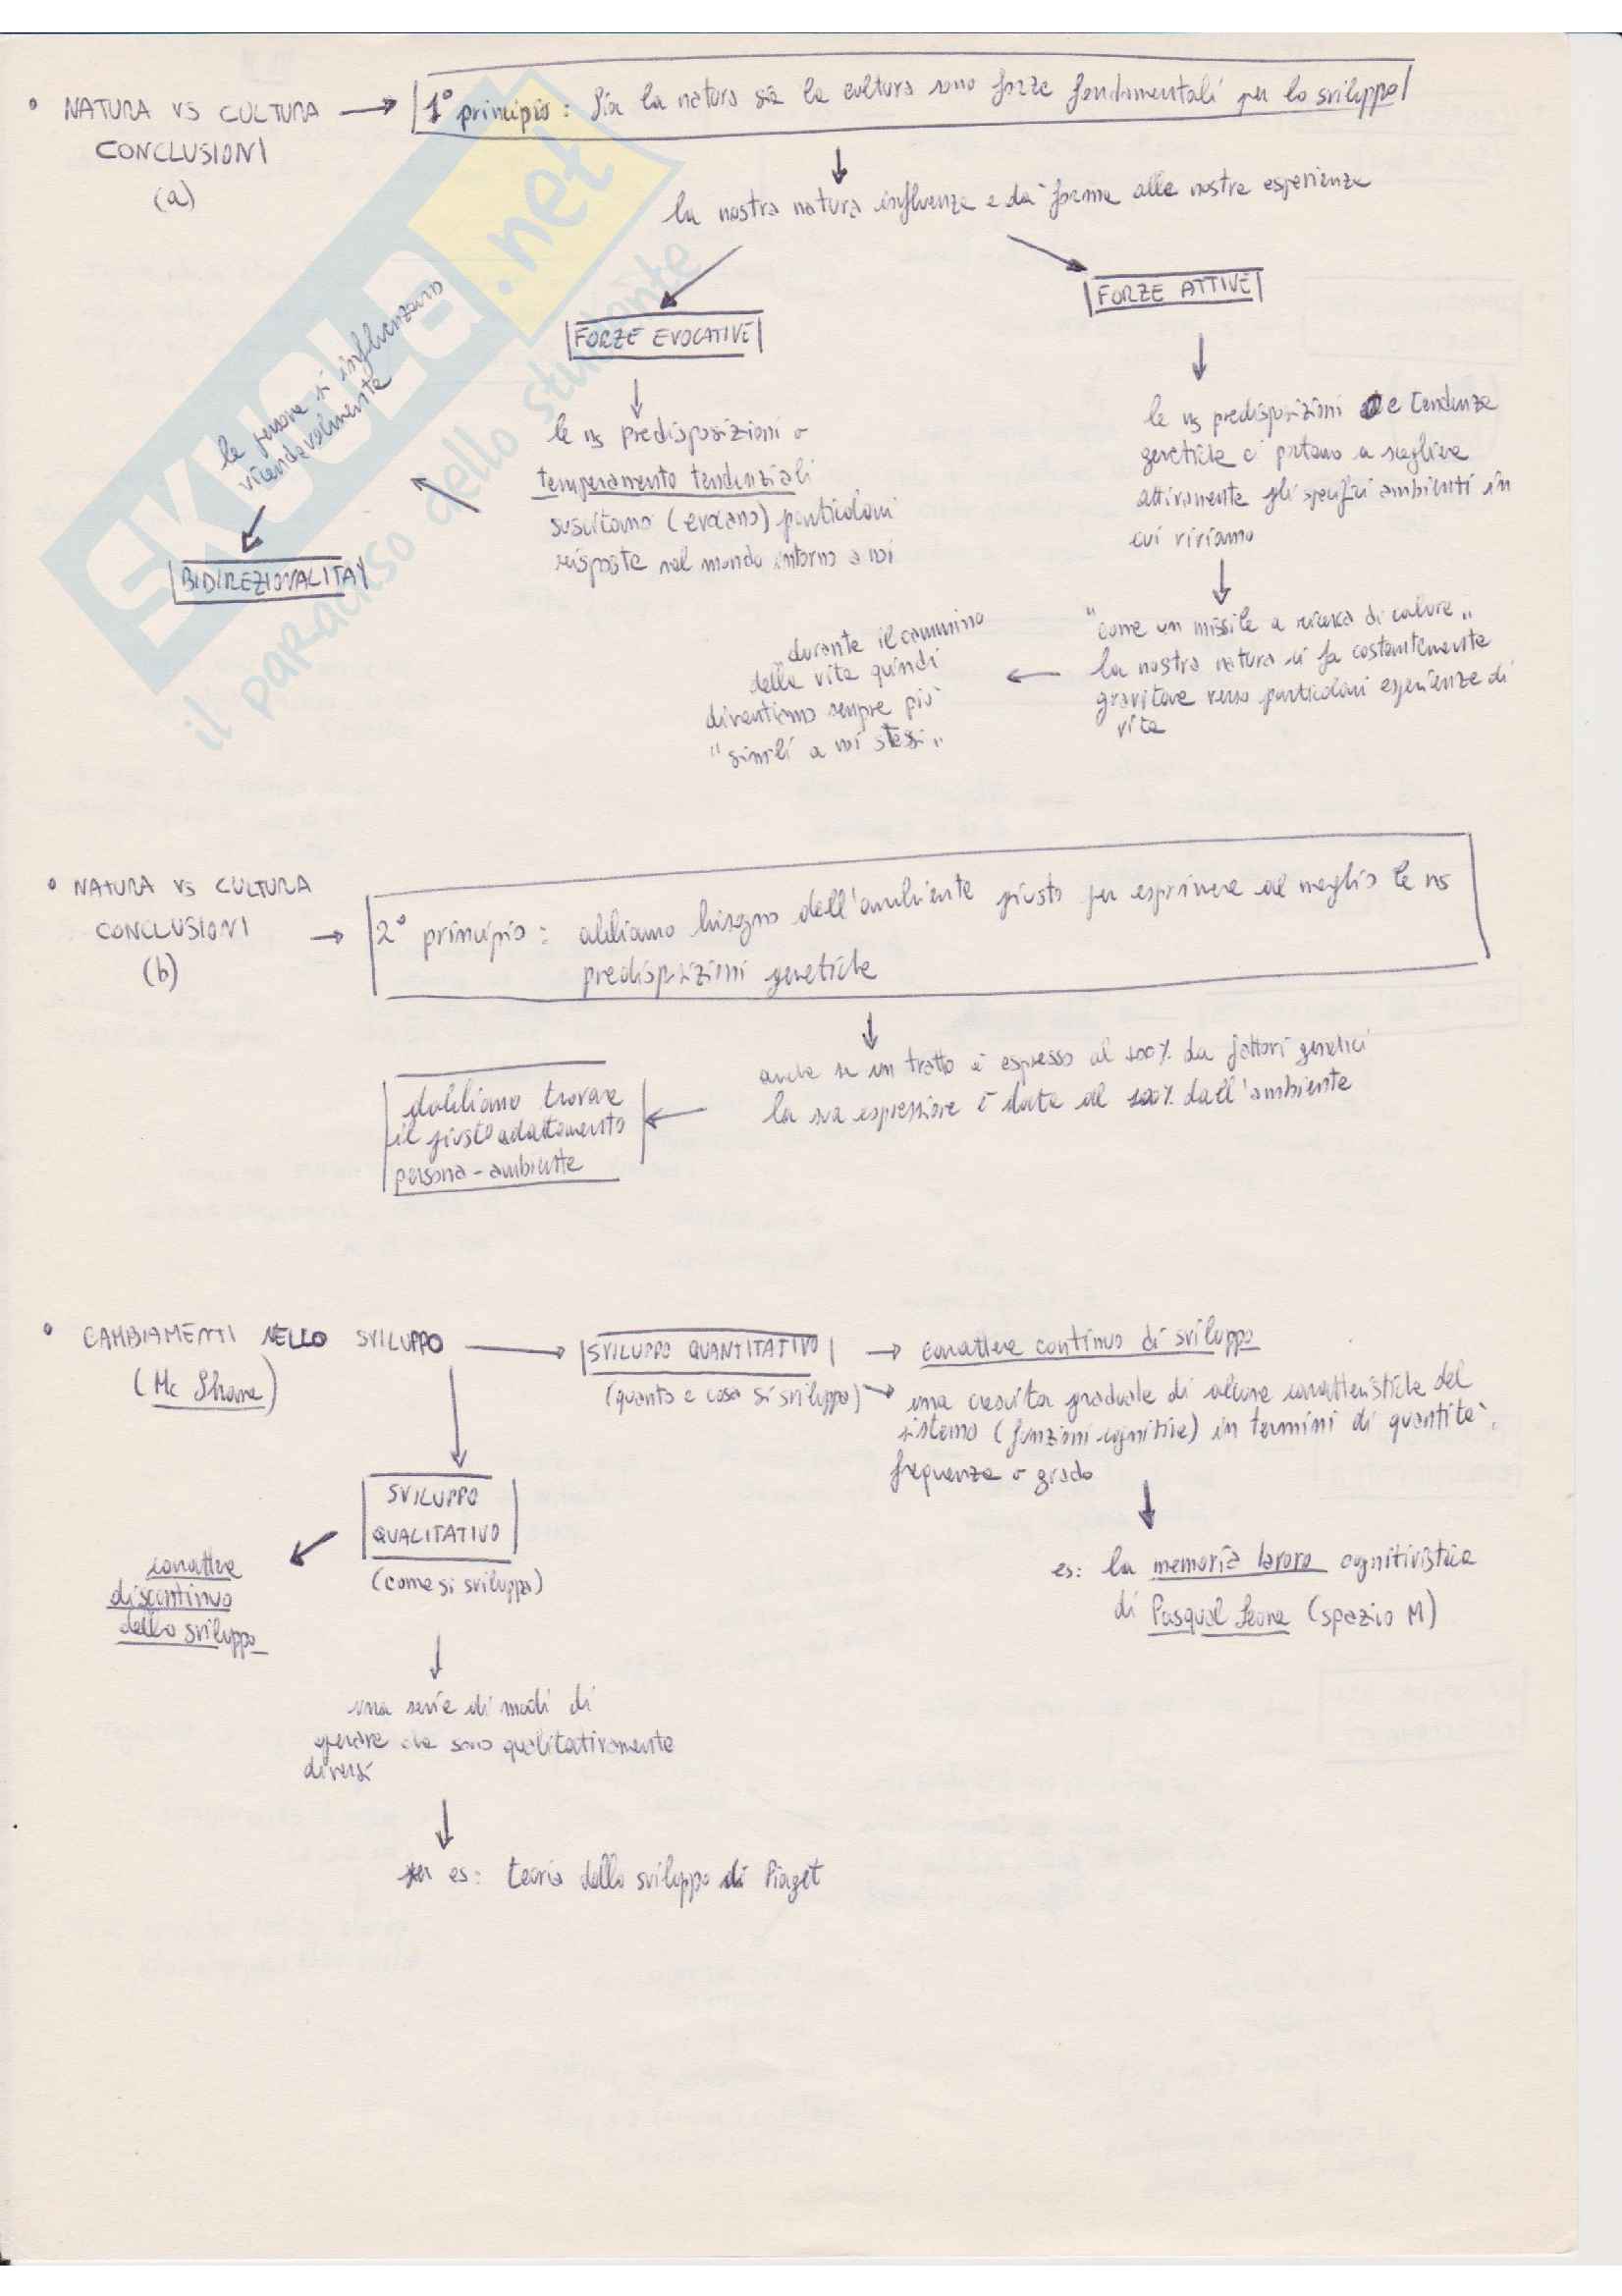 • NATURA VS CULTURA → 1° principio: Sia la natura sia la cultura sono forze fondamentali per lo sviluppo
CONCLUSIONI
(a)
la nostra natura influenza e dà forma alle nostre esperienze
FORZE EVOCATIVE
FORZE ATTIVE
le ns predisposizioni o
temperamento tendenziali
suscitano (evocano) particolari
risposte nel mondo intorno a noi
le persone si influenzano
vicendevolmente
BIDIREZIONALITA'
le ns predisposizioni e tendenze
genetiche ci portano a scegliere
attivamente gli specifici ambienti in
cui viviamo
"come un missile a ricerca di calore"
la nostra natura ci fa costantemente
gravitare verso particolari esperienze di
vita
durante il cammino
della vita quindi
diventiamo sempre più
"simili a noi stessi"
• NATURA VS CULTURA
CONCLUSIONI →
(b)
2° principio: abbiamo bisogno dell'ambiente giusto per esprimere al meglio le ns
predisposizioni genetiche
anche se un tratto è espresso al 100% da fattori genetici
la sua espressione è data al 100% dall'ambiente
dobbiamo trovare
il giusto adattamento
persona-ambiente
• CAMBIAMENTI NELLO SVILUPPO → SVILUPPO QUANTITATIVO → carattere continuo di sviluppo
(Mc Shane)
(quanto e cosa si sviluppa) → una crescita graduale di alcune caratteristiche del
sistema (funzioni cognitive) in termini di quantità,
frequenza o grado
es: la memoria lavoro cognitivistica
di Pasqual Leone (spazio M)
SVILUPPO
QUALITATIVO
(come si sviluppa)
carattere
discontinuo
dello sviluppo
una serie di modi di
operare che sono qualitativamente
diversi
es: teoria dello sviluppo di Piaget
SKUOLA.net
il paradiso dello studente